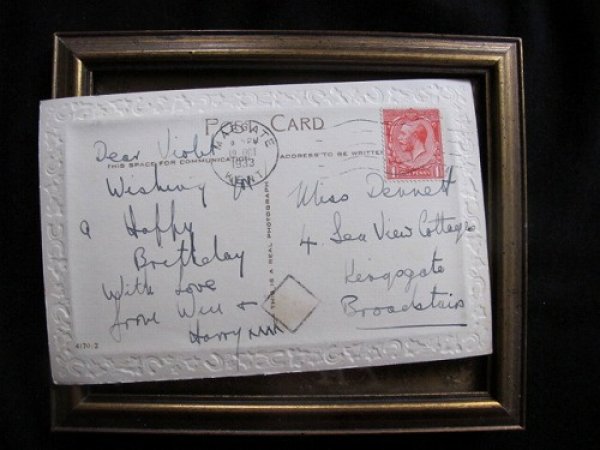 POST CARD
THIS SPACE FOR COMMUNICATION
ADDRESS TO BE WRITTEN
MARGATE
PM
19 OCT
1933
KENT
Dear Violet
Wishing you
a Happy
Birthday
With Love
from Will &
Harry xxx
THIS IS A REAL PHOTOGRAPH
Miss Dennett
4. Sea View Cottages
Kingsgate
Broadstairs
4170/2